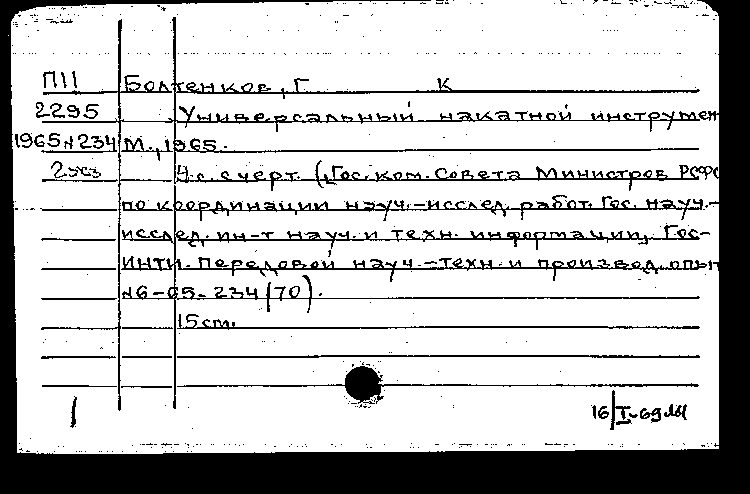 П11 Болтенков, Г К
2295 Универсальный накатной инструмен
1965 №234 М., 1965.
2экз 4 с. с черт. (Гос. ком. Совета Министров РСФС
по координации науч.-исслед. работ. Гос. науч.-
исслед. ин-т науч. и техн. информации, Гос-
ИНТИ. Передовой науч.-техн. и производ. опыт
№6-65-234/70).
15 cm.
16/I-69